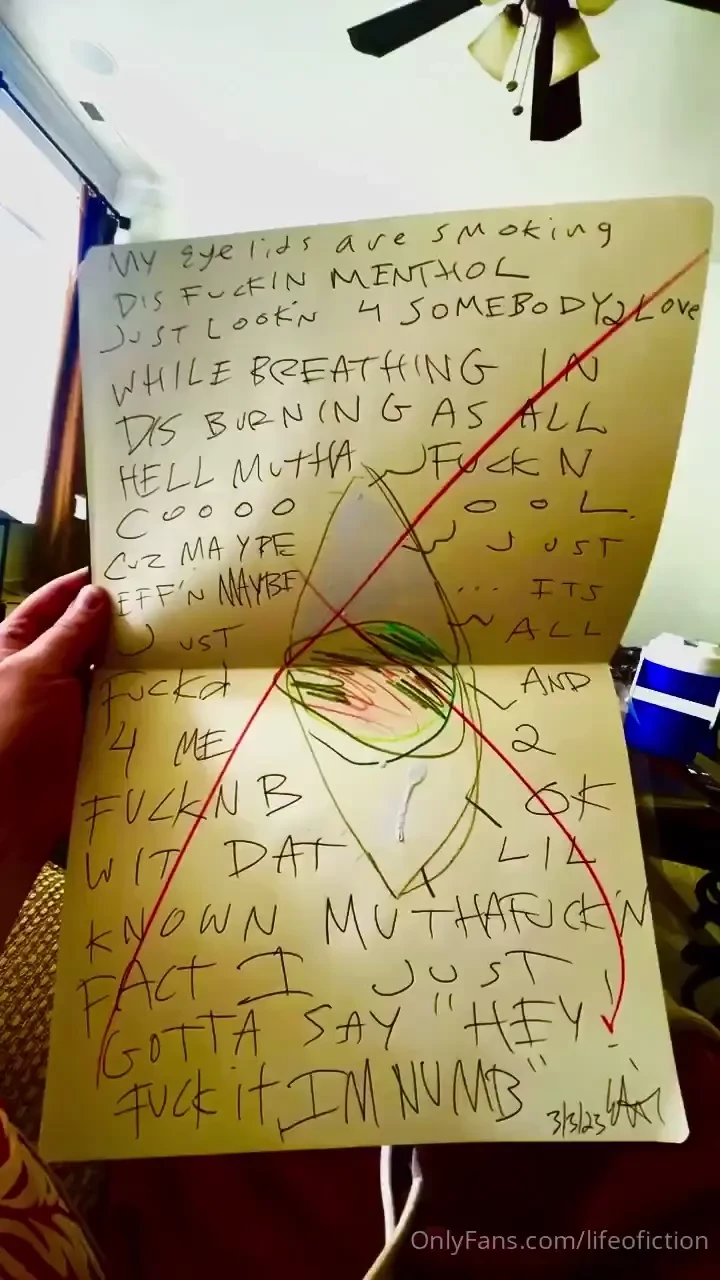 MY eyelids are smoking
DIS FUCKIN MENTHOL
JUST LOOK'N 4 SOMEBODY 2 Love
WHILE BREATHING IN
DIS BURNING AS ALL
HELL MUTHA FUCK N
COOOO OOOL.
CUZ MAYPE JUST
EFF'N MAYBE ... ITS
JUST ALL
FUCKd AND
4 ME 2
FUCKN B OK
WIT DAT LIL
KNOWN MUTHAFUCK'N
FACT I JUST
GOTTA SAY "HEY!
FUCK it, IM NUMB"
3/3/23
OnlyFans.com/lifeofiction